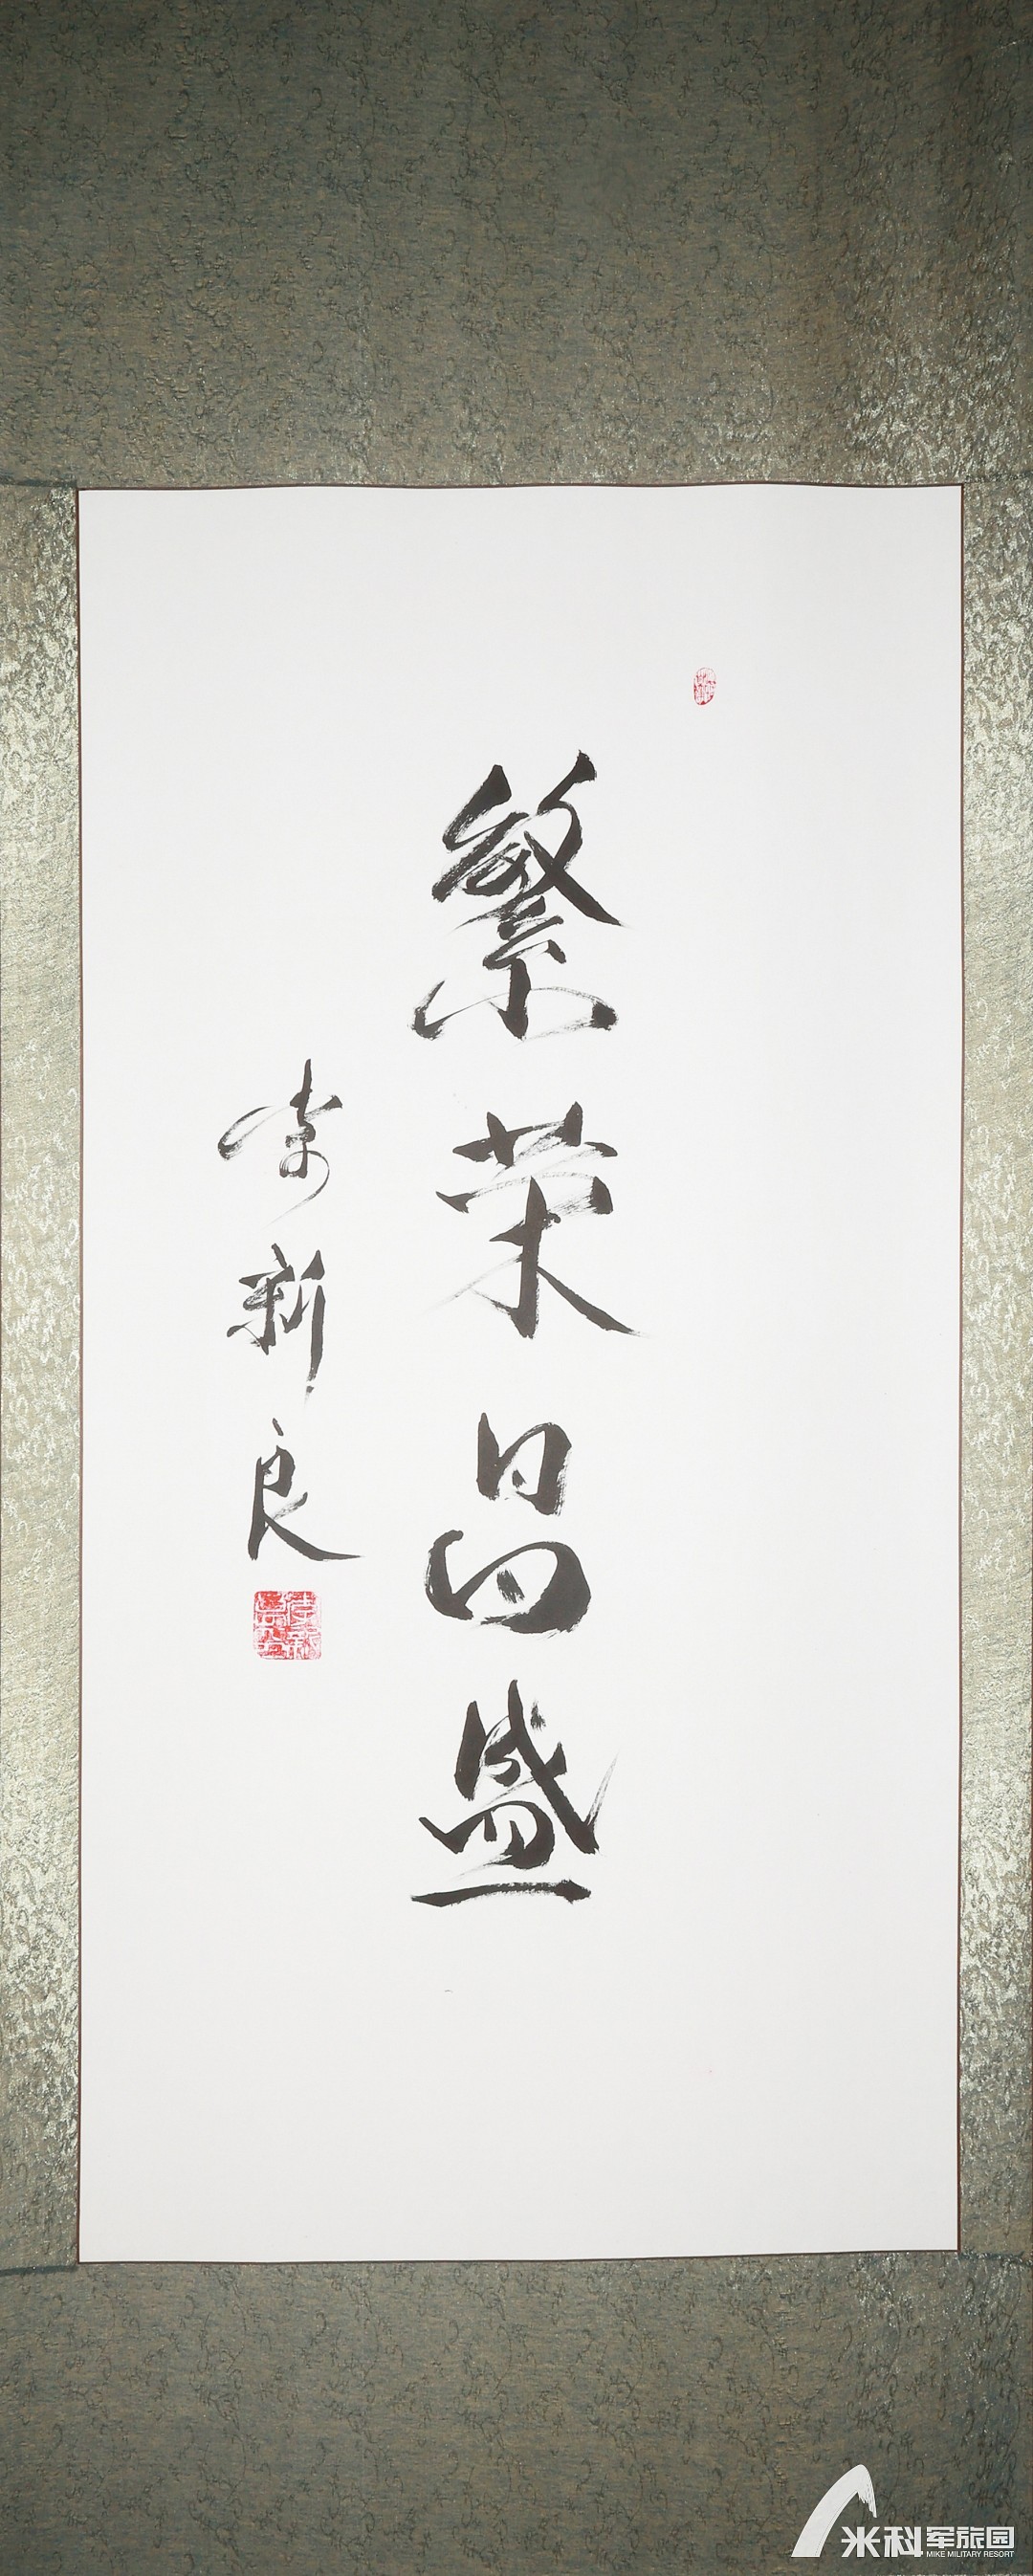 繁荣昌盛
李新良
米科军旅园
MIKE MILITARY RESORT